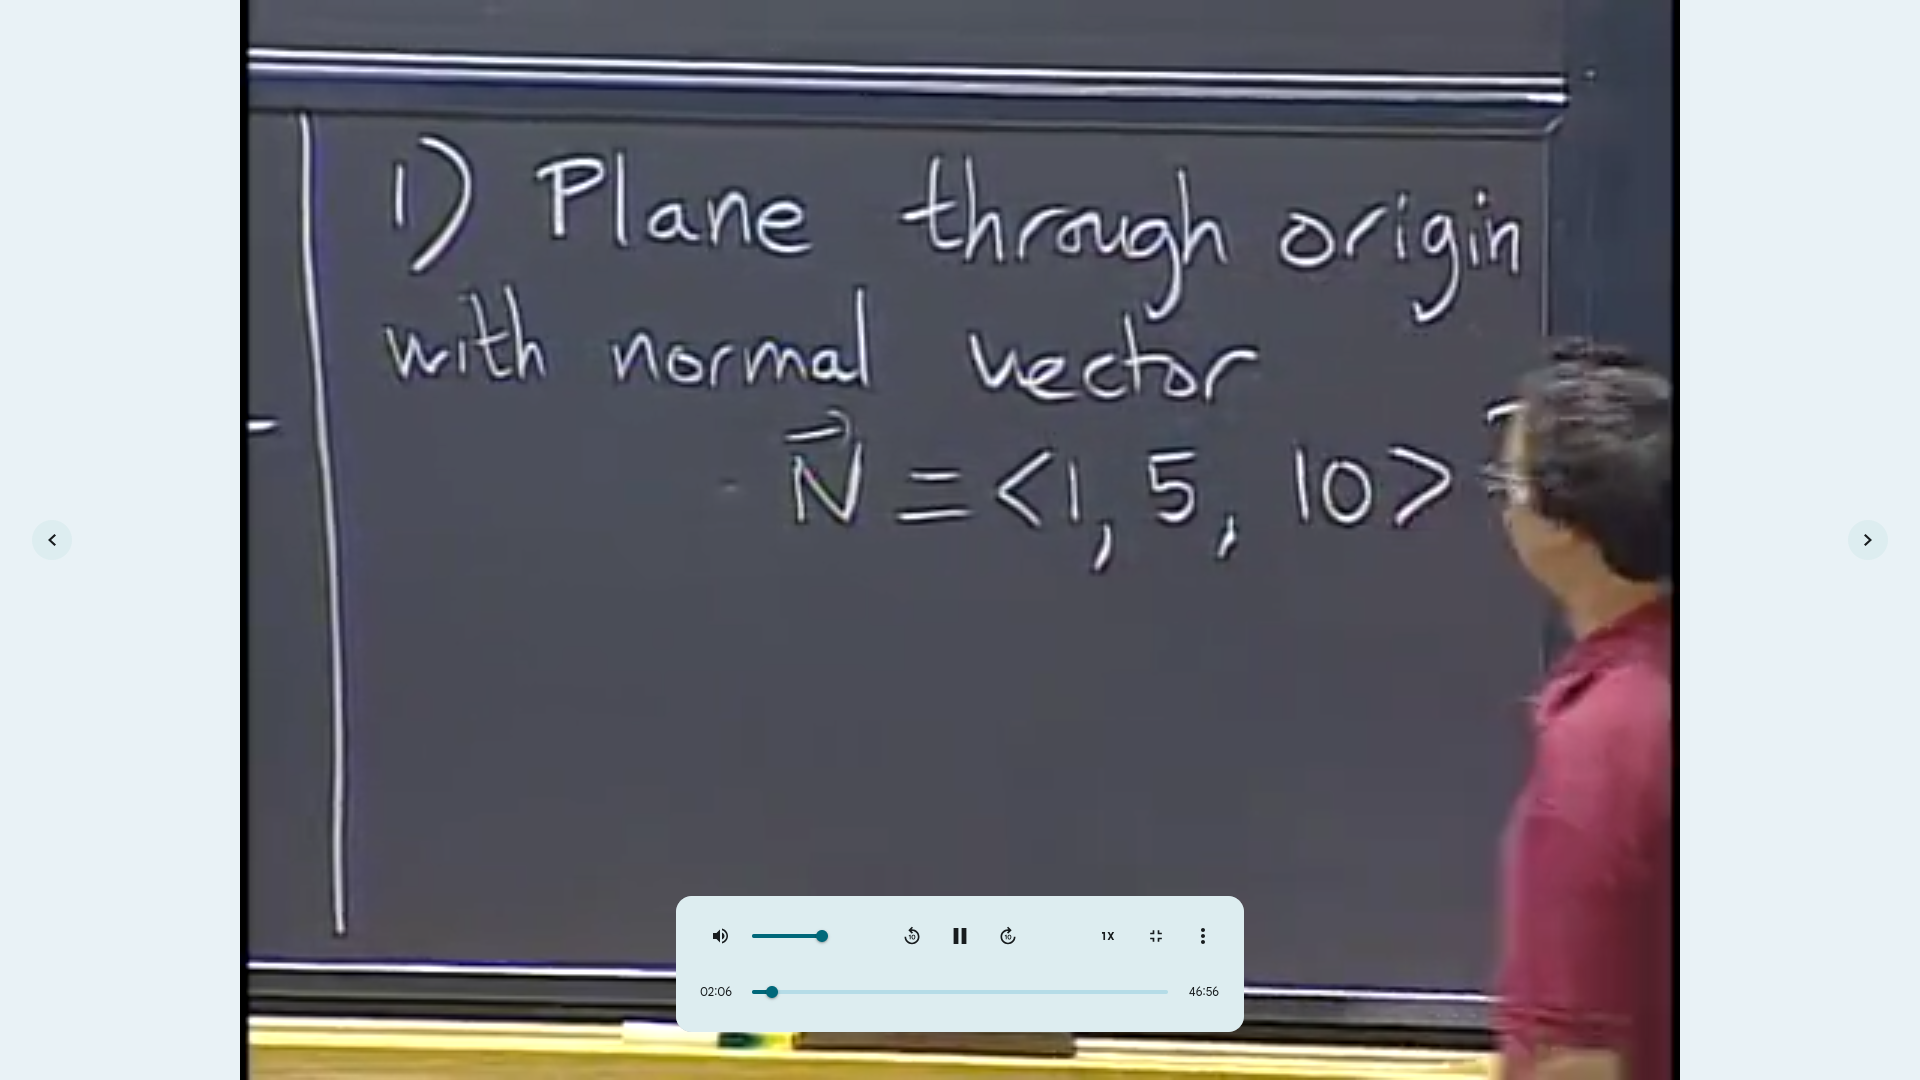 1) Plane through origin
with normal vector
N⃗ = <1, 5, 10> ?
1X
02:06
46:56